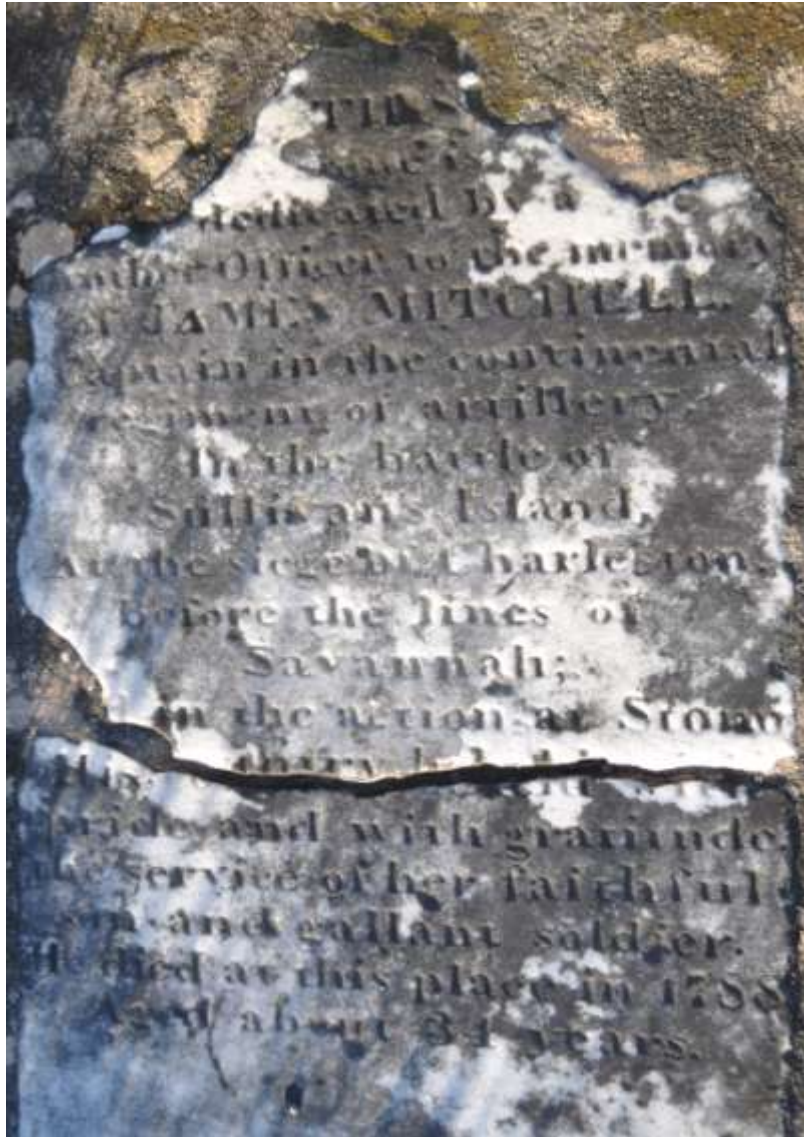 THIS
stone is
dedicated by a
brother Officer to the memory
of JAMES MITCHELL.
Captain in the continental
regiment of artillery
In the battle of
Sullivan's Island,
At the siege of Charleston,
Before the lines of
Savannah;
in the action at Stono
His
pride and with gratitude,
the service of her faithful
son and gallant soldier.
He died at this place in 1788
Aged about 34 years.